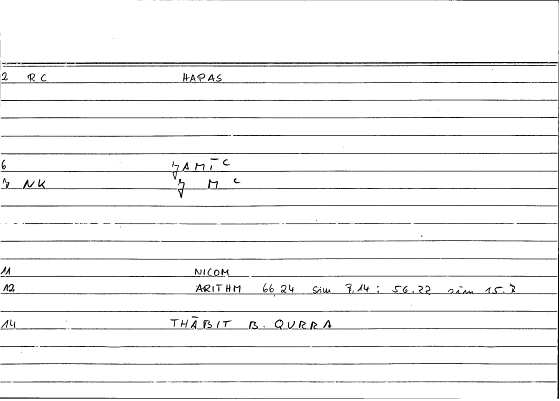 2 RC HAPAS
6 ǧAMĪC
7 NK ǧ M C
11 NICOM
12 ARITHM 66,24 sim 7,14; 56.22 sim 15.7
14 THĀBIT B. QURRA